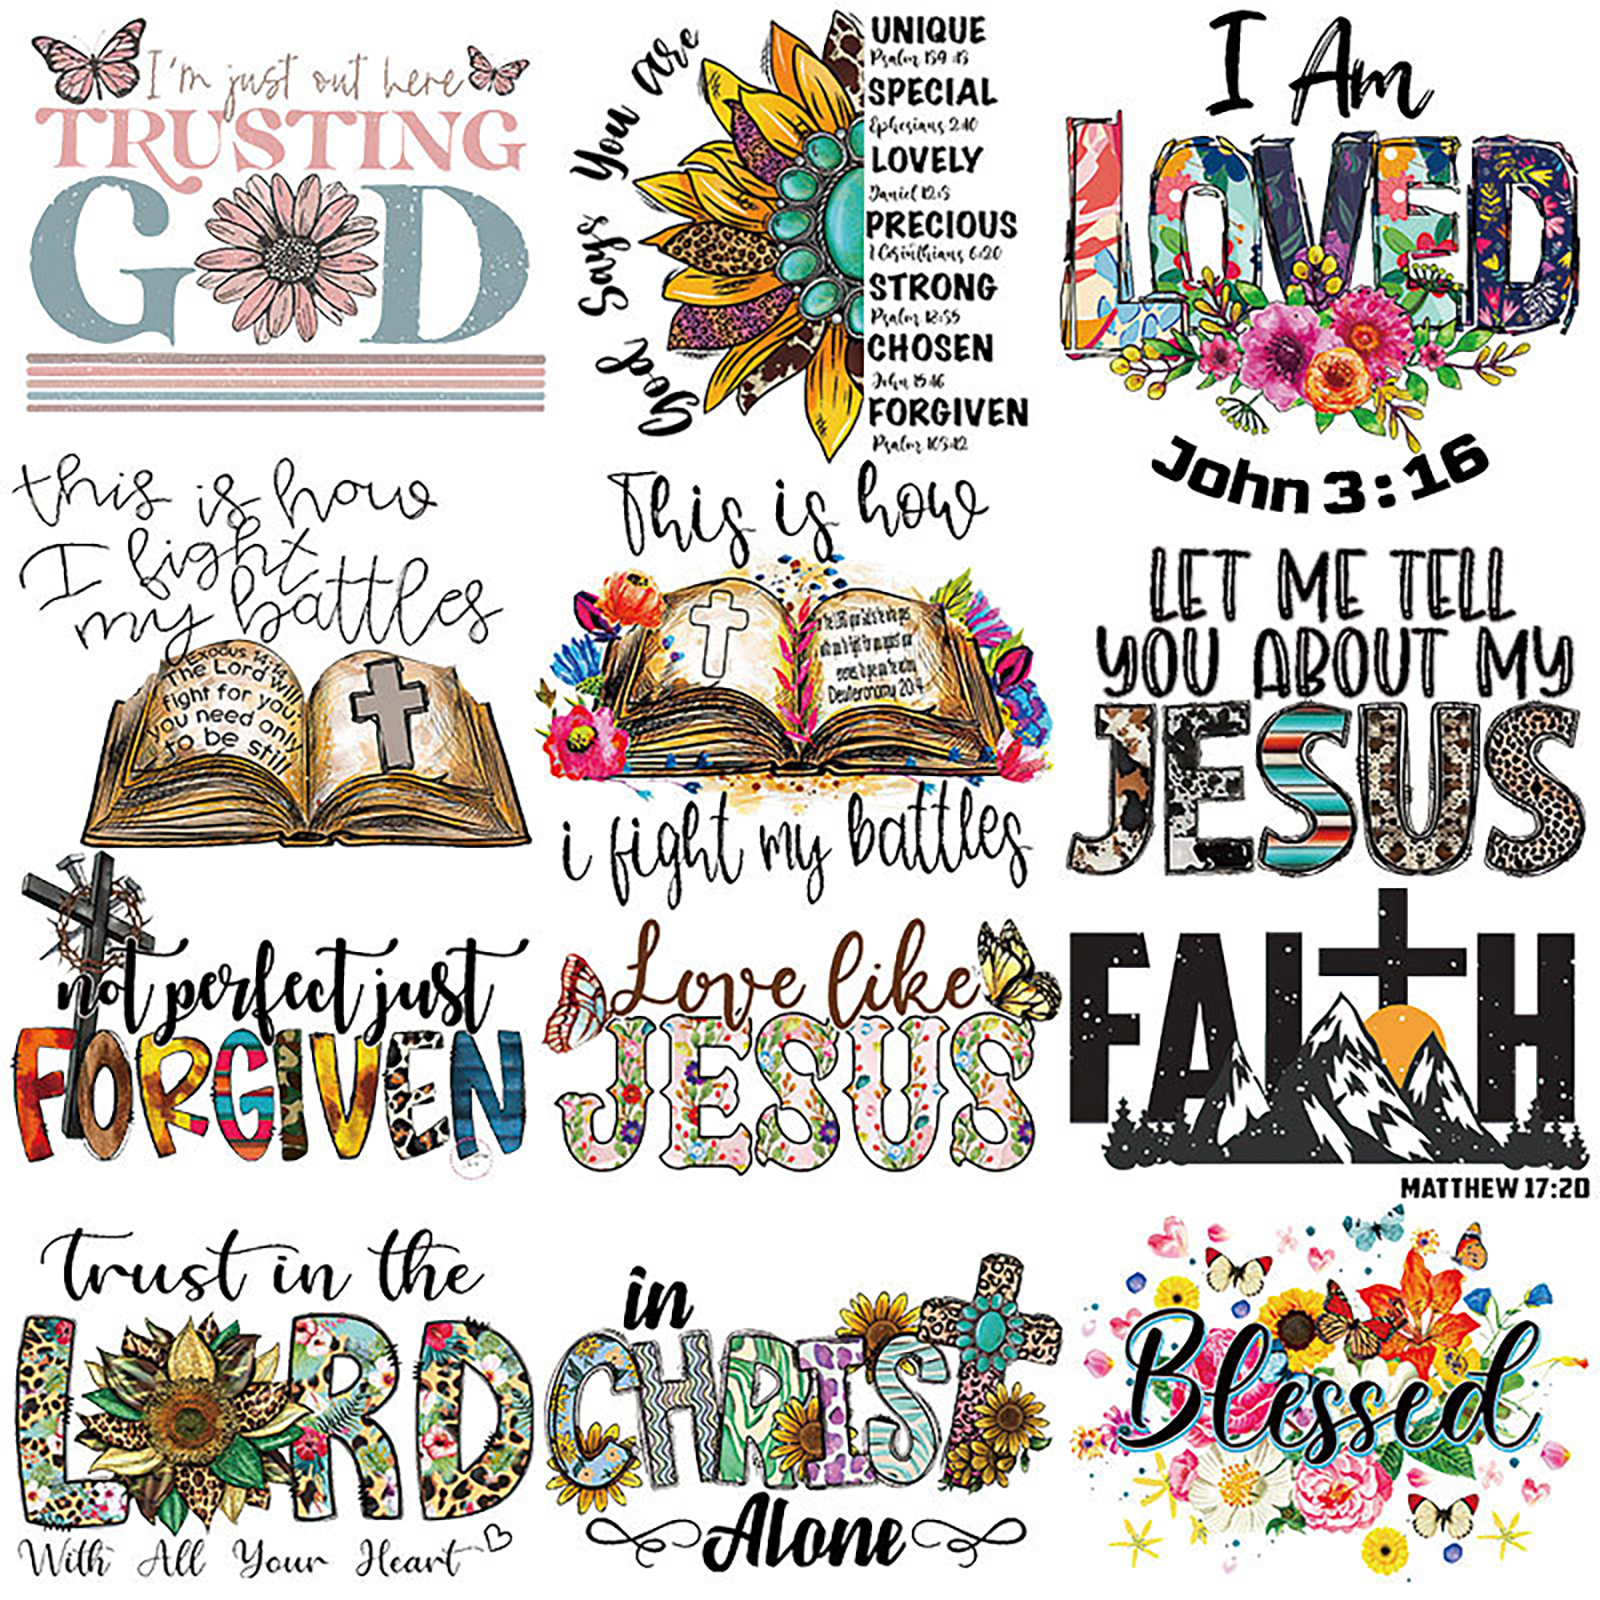 I'm just out here
TRUSTING
GOD
God Says You are
UNIQUE
Psalm 139:13
SPECIAL
Ephesians 2:10
LOVELY
Daniel 12:3
PRECIOUS
1 Corinthians 6:20
STRONG
Psalm 18:35
CHOSEN
John 15:16
FORGIVEN
Psalm 103:12
I Am
LOVED
John 3:16
this is how
I fight
my battles
Exodus 14:14
The Lord will
fight for you;
you need only
to be still
This is how
Deuteronomy 20:4
i fight my battles
LET ME TELL
YOU ABOUT MY
JESUS
not perfect just
FORGIVEN
Love like
JESUS
FAITH
MATTHEW 17:20
trust in the
LORD
With All Your Heart
in
CHRIST
Alone
Blessed